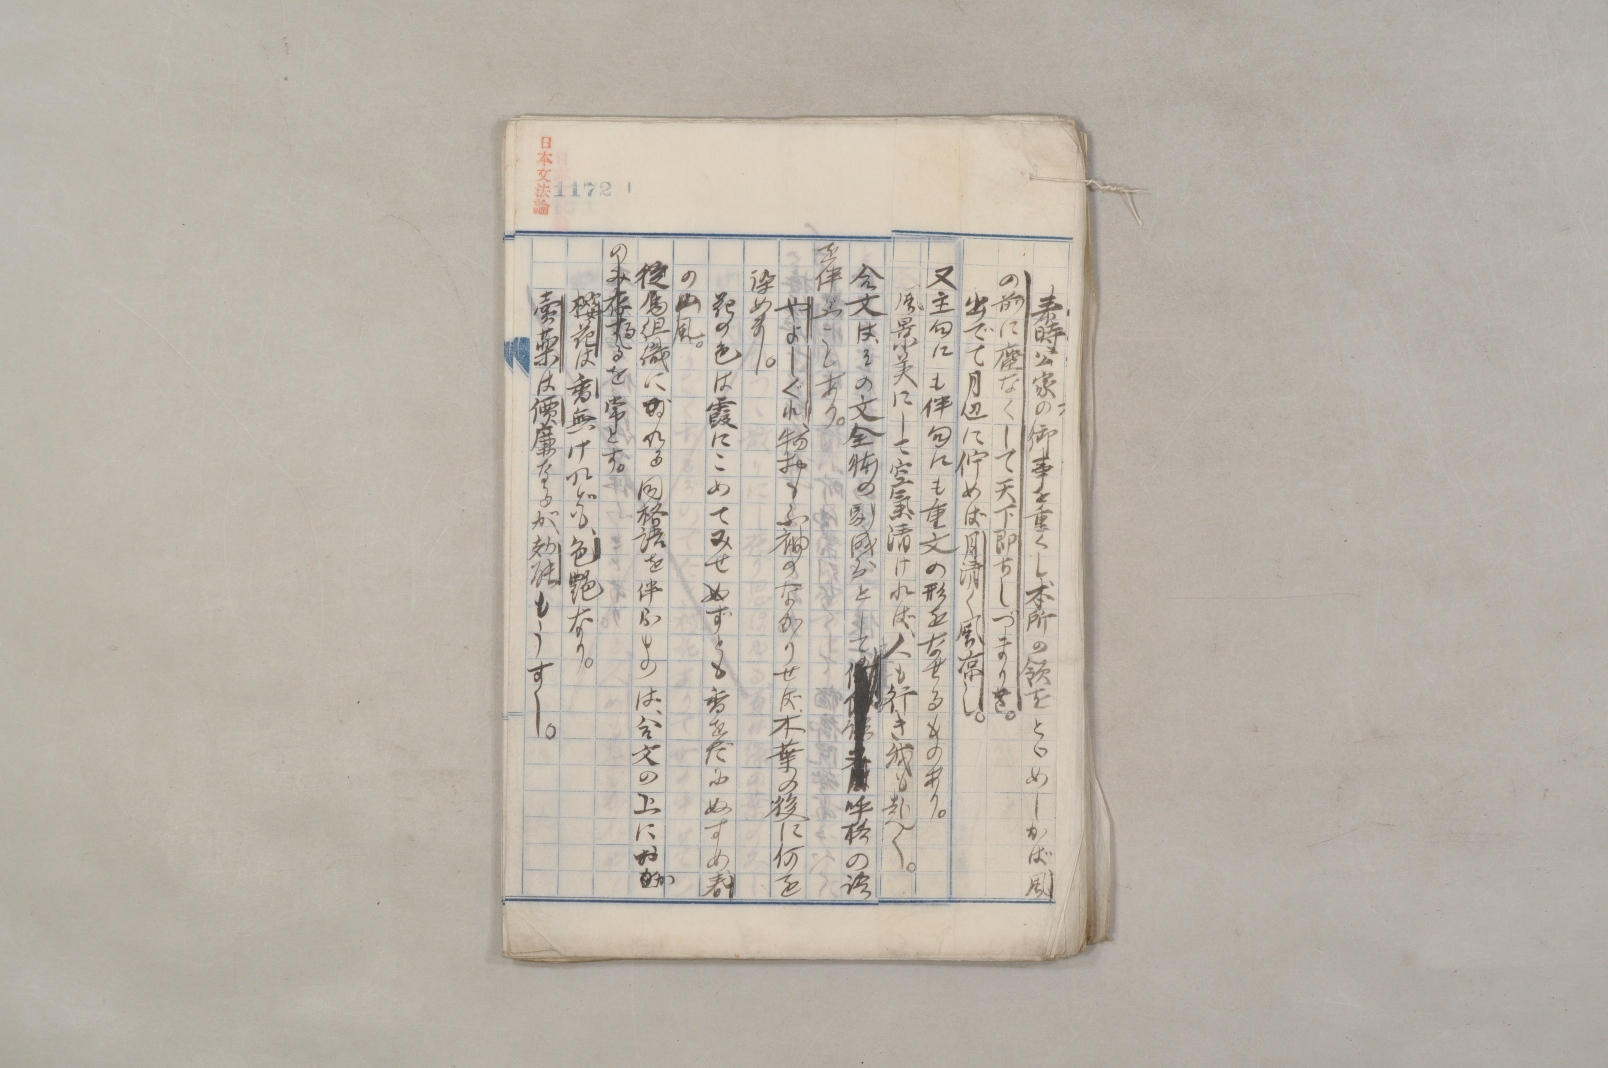 日本文法論
1172
泰時公家の御事を重くし本所の領をとゞめしかば風
の前に塵なくして天下即ちしづまりき。
出でて月辺に佇めば月清く風凉し。
又主句にも伴句にも重文の形をなせるものあり。
風景美にして空氣清ければ、人も行き我も赴く。
合文はその文全体の副成分として呼格の語
を伴ふことあり。
やよしぐれ物おもふ袖のなかりせば木葉の後に何を
染めまし。
花の色は霞にこめてみせずとも香をだにぬすめ春
の山風。
従属組織になれる同格語を伴ふものは、合文の上に
のみ存するを常とす。
櫻花は香無けれども、色艶なり。
賣藥は價廉なるが、効能もうすし。